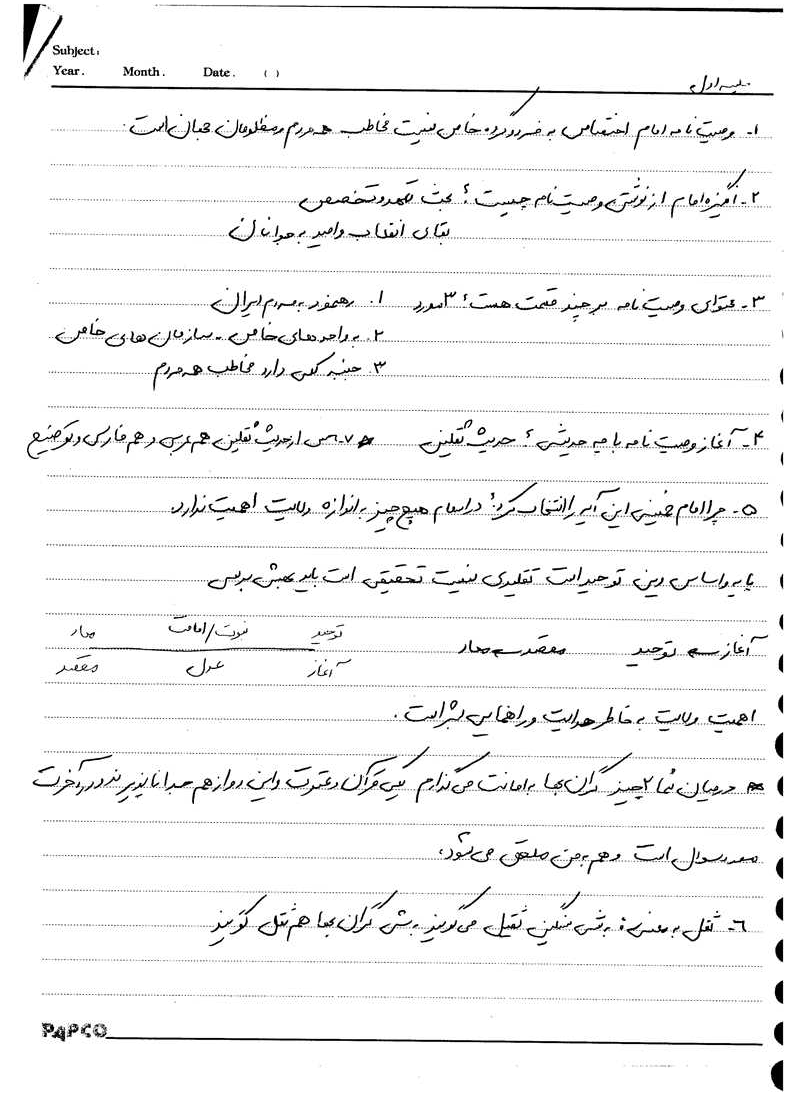 Subject:
Year. Month. Date. ( )
جلسه اول
۱- وصیت نامه امام اختصاص به فرد و گروه خاص نیست مخاطب همه مردم و مظلومان جهان است.
۲- انگیزه امام از نوشتن وصیت نامه چیست؟ بحث تعهد و تخصص
بقای انقلاب و امید به جوانان
۳- محتوای وصیت نامه بر چند قسمت هست؟ ۳ مورد ۱. رهنمود به مردم ایران
۲. به واحدهای خاص - سازمان های خاص
۳. جنبه کلی دارد مخاطب همه مردم
۴- آغاز وصیت نامه با چه حدیثی؟ حدیث ثقلین ۷- پس از حدیث ثقلین هم عربی و هم فارسی و توضیح
۵- چرا امام خمینی این آیه را انتخاب کرد؟ در اسلام هیچ چیز به اندازه ولایت اهمیت ندارد.
پایه و اساس دین توحید است تقلیدی نیست تحقیقی است باید بهش برسی
آغاز توحید مقصد معاد
توحید نبوت/امامت معاد
آغاز عدل مقصد
اهمیت ولایت به خاطر هدایت و راهنمایی بشر است.
در میان شما ۲ چیز گران بها به امانت می گذارم یکی قرآن و عترت و این دو از هم جدا ناپذیرند در آخرت
مورد سوال است و هم به من ملحق می شود.
۶- ثقل به معنی: به شی سنگین ثقیل می گویند به شی گران بها هم ثقل گویند
PAPCO